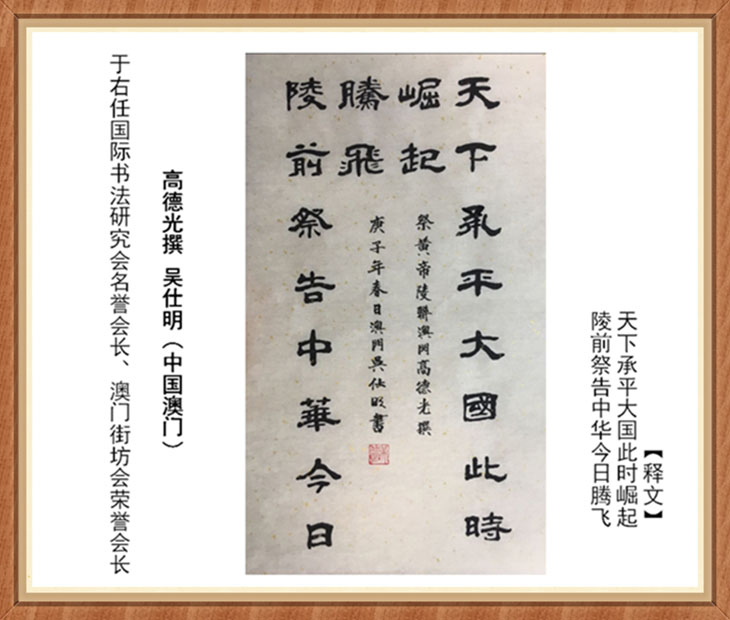 【释文】
天下承平大国此时崛起
陵前祭告中华今日腾飞
天下承平大國此時
崛起
祭黄帝陵聯澳門高德光撰
庚子年春日澳門吳仕明書
騰飛
陵前祭告中華今日
高德光撰 吴仕明（中国澳门）
于右任国际书法研究会名誉会长、澳门街坊会荣誉会长